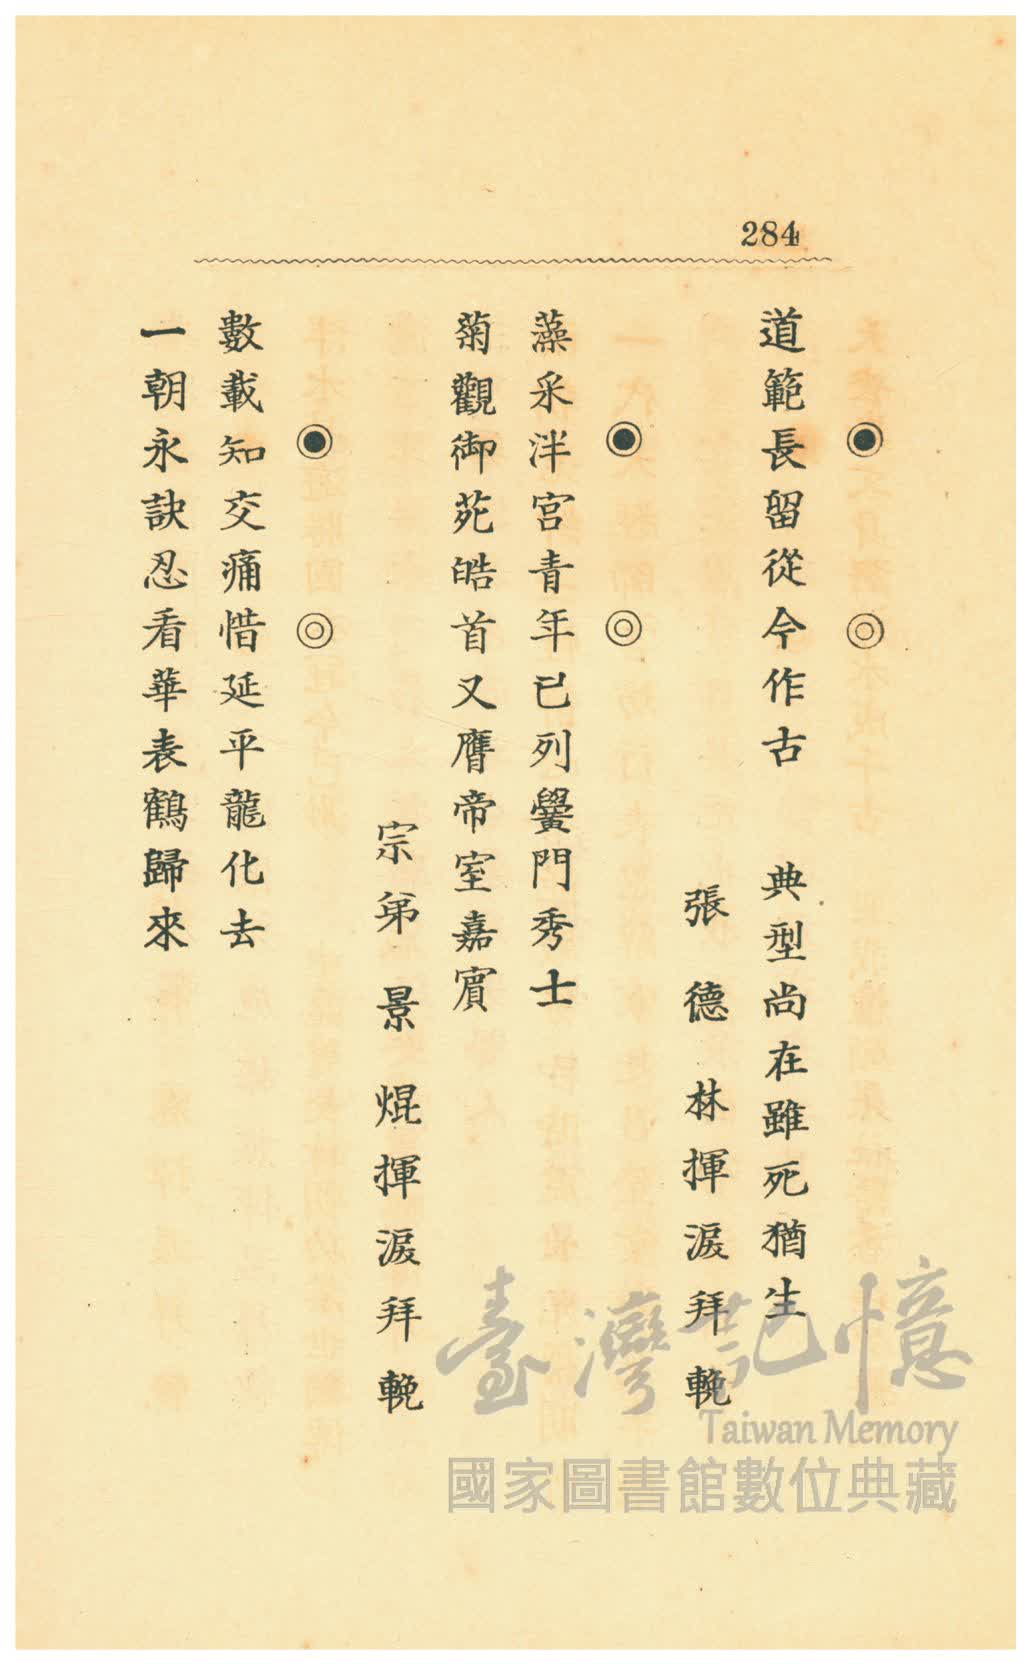 284
◉ ◎
道範長留從今作古　典型尚在雖死猶生
張德林揮淚拜輓
◉ ◎
藻采泮宮青年已列黌門秀士
菊觀御苑皓首又膺帝室嘉賓
宗弟景焜揮淚拜輓
◉ ◎
數載知交痛惜延平龍化去
一朝永訣忍看華表鶴歸來
臺灣記憶
Taiwan Memory
國家圖書館數位典藏